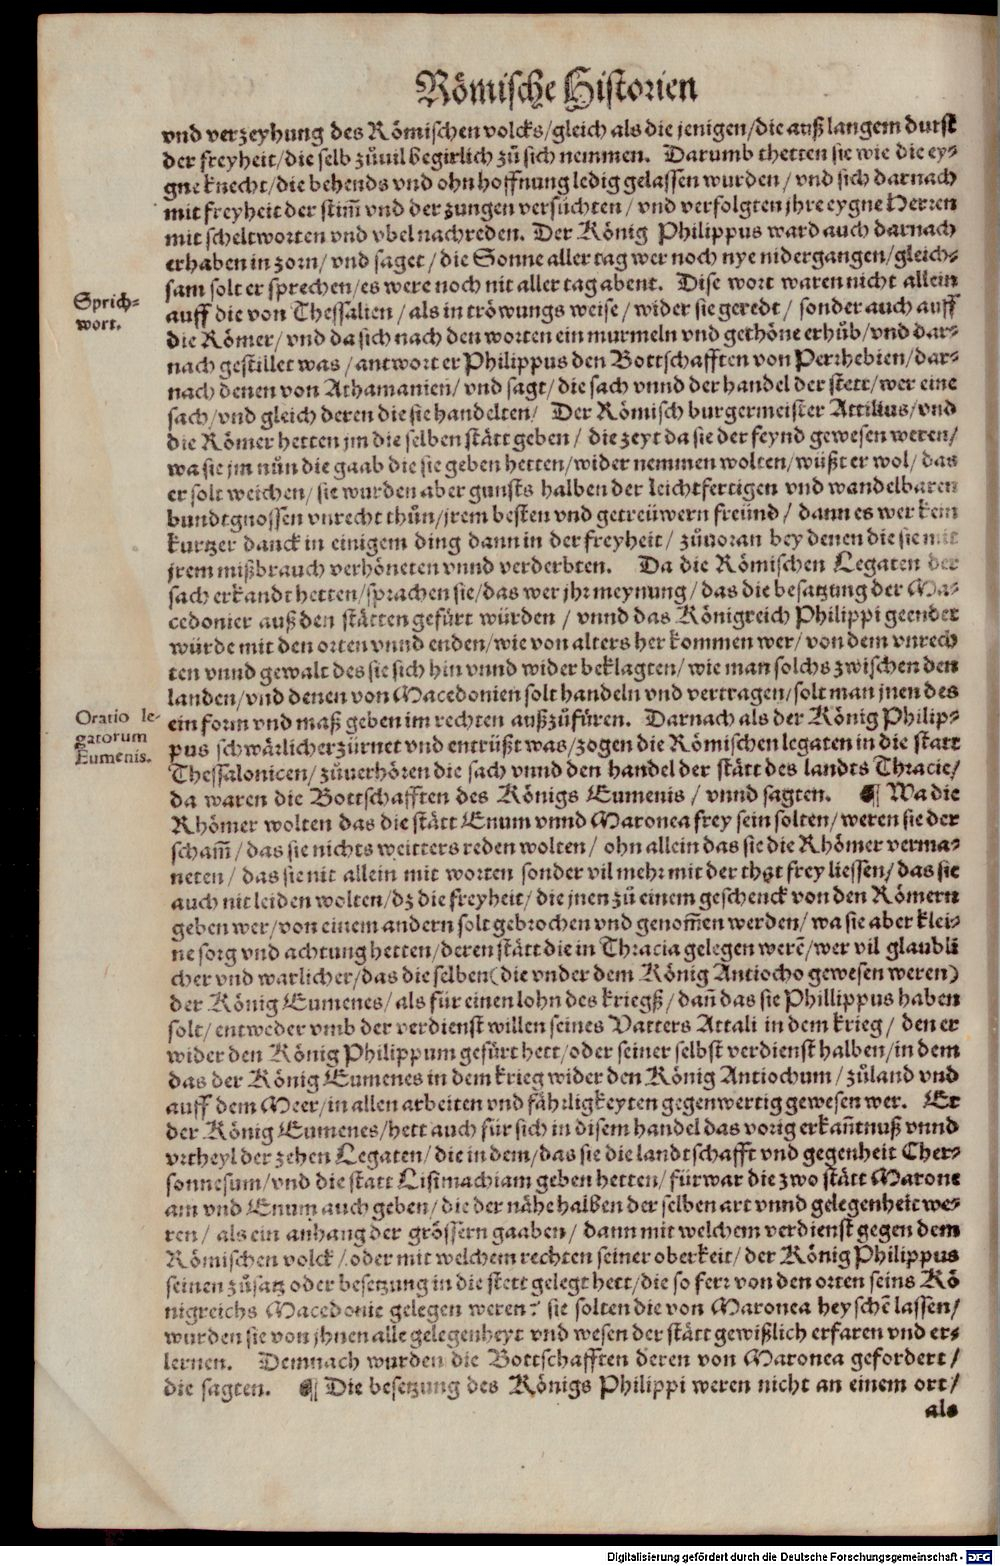 Römische Historien
vnd verzeyhung des Römischen volcks/gleich als die jenigen/die auß langem durst
der freyheit/die selb zůuil begirlich zů sich nemmen. Darumb thetten sie wie die ey-
gne knecht/die behends vnd ohn hoffnung ledig gelassen wurden/ vnd sich darnach
mit freyheit der stim̃ vnd der zungen versůchten/ vnd verfolgten jhre eygne Herren
mit scheltworten vnd vbel nachreden. Der König Philippus ward auch darnach
erhaben in zorn/ vnd saget/ die Sonne aller tag wer noch nye nidergangen/gleich-
sam solt er sprechen/es were noch nit aller tag abent. Dise wort waren nicht allein
Sprich-
wort.
auff die von Thessalien/ als in tröwungs weise/ wider sie geredt/ sonder auch auff
die Römer/ vnd da sich nach den worten ein murmeln vnd gethöne erhůb/vnd dar-
nach gestillet was/ antwort er Philippus den Bottschafften von Perrhebien/dar-
nach denen von Athamanien/ vnd sagt/ die sach vnnd der handel der stett/wer eine
sach/vnd gleich deren die sie handelten/ Der Römisch burgermeister Attilius/vnd
die Römer hetten jm die selben stätt geben/ die zeyt da sie der feynd gewesen weren/
wa sie jm nůn die gaab die sie geben hetten/wider nemmen wolten/wüßt er wol/ das
er solt weichen/ sie wurden aber gunsts halben der leichtfertigen vnd wandelbaren
bundtgnossen vnrecht thůn/jrem besten vnd getreüwern freünd/ dann es wer kein
kurtzer danck in einigem ding dann in der freyheit/ zůuoran bey denen die sie mit
jrem mißbrauch verhöneten vnnd verderbten. Da die Römischen Legaten der
sach erkandt hetten/sprachen sie/das wer jhr meynung/ das die besatzung der Ma-
cedonier auß den stätten gefürt würden/ vnnd das Königreich Philippi geendet
würde mit den orten vnnd enden/wie von alters her kommen wer/ von dem vnrech
ten vnnd gewalt des sie sich hin vnnd wider beklagten/ wie man solchs zwischen den
landen/vnd denen von Macedonien solt handeln vnd vertragen/solt man jnen des
Oratio le-
gatorum
Eumenis.
ein form vnd maß geben im rechten außzůfüren. Darnach als der König Philip-
pus schwärlich erzürnet vnd entrüßt was/zogen die Römischen legaten in die statt
Thessalonicen/ zůuerhören die sach vnnd den handel der stätt des landts Thracie/
da waren die Bottschafften des Königs Eumenis/ vnnd sagten. ¶ Wa die
Rhömer wolten das die stätt Enum vnnd Maronea frey sein solten/weren sie der
scham̃/das sie nichts weitters reden wolten/ ohn allein das sie die Rhömer verma-
neten/ das sie nit allein mit worten sonder vil mehr mit der that frey liessen/das sie
auch nit leiden wolten/dz die freyheit/ die jnen zů einem geschenck von den Römern
geben wer/von einem andern solt gebrochen vnd genom̃en werden/ wa sie aber klei-
ne sorg vnd achtung hetten/deren stätt die in Thracia gelegen werẽ/wer vil glaubli
cher vnd warlicher/das die selben (die vnder dem König Antiocho gewesen weren)
der König Eumenes/als für einen lohn des kriegß/ dañ das sie Phillippus haben
solt/entweder vmb der verdienst willen seines Vatters Attali in dem krieg/ den er
wider den König Philippum gefürt hett/oder seiner selbst verdienst halben/in dem
das der König Eumenes in dem krieg wider den König Antiochum/ zůland vnd
auff dem Meer/in allen arbeiten vnd fährligkeyten gegenwertig gewesen wer. Er
der König Eumenes/hett auch für sich in disem handel das vorig erkañtnuß vnnd
vrtheyl der zehen Legaten/die in dem/das sie die landtschafft vnd gegenheit Cher-
sonnesum/vnd die statt Lisimachiam geben hetten/fürwar die zwo stätt Marone
am vnd Enum auch geben/die der nähe halben der selben art vnnd gelegenheit we-
ren/ als ein anhang der grössern gaaben/ dann mit welchem verdienst gegen dem
Römischen volck/ oder mit welchem rechten seiner oberkeit/ der König Philippus
seinen zůsatz oder besetzung in die stett gelegt hett/die so ferr von den orten seins Kö
nigreichs Macedonie gelegen weren? sie solten die von Maronea heyschẽ lassen/
wurden sie von jhnen alle gelegenheyt vnd wesen der stätt gewißlich erfaren vnd er-
lernen. Demnach wurden die Bottschafften deren von Maronea gefordert/
die sagten. ¶ Die besetzung des Königs Philippi weren nicht an einem ort/
als
Digitalisierung gefördert durch die Deutsche Forschungsgemeinschaft - DFG